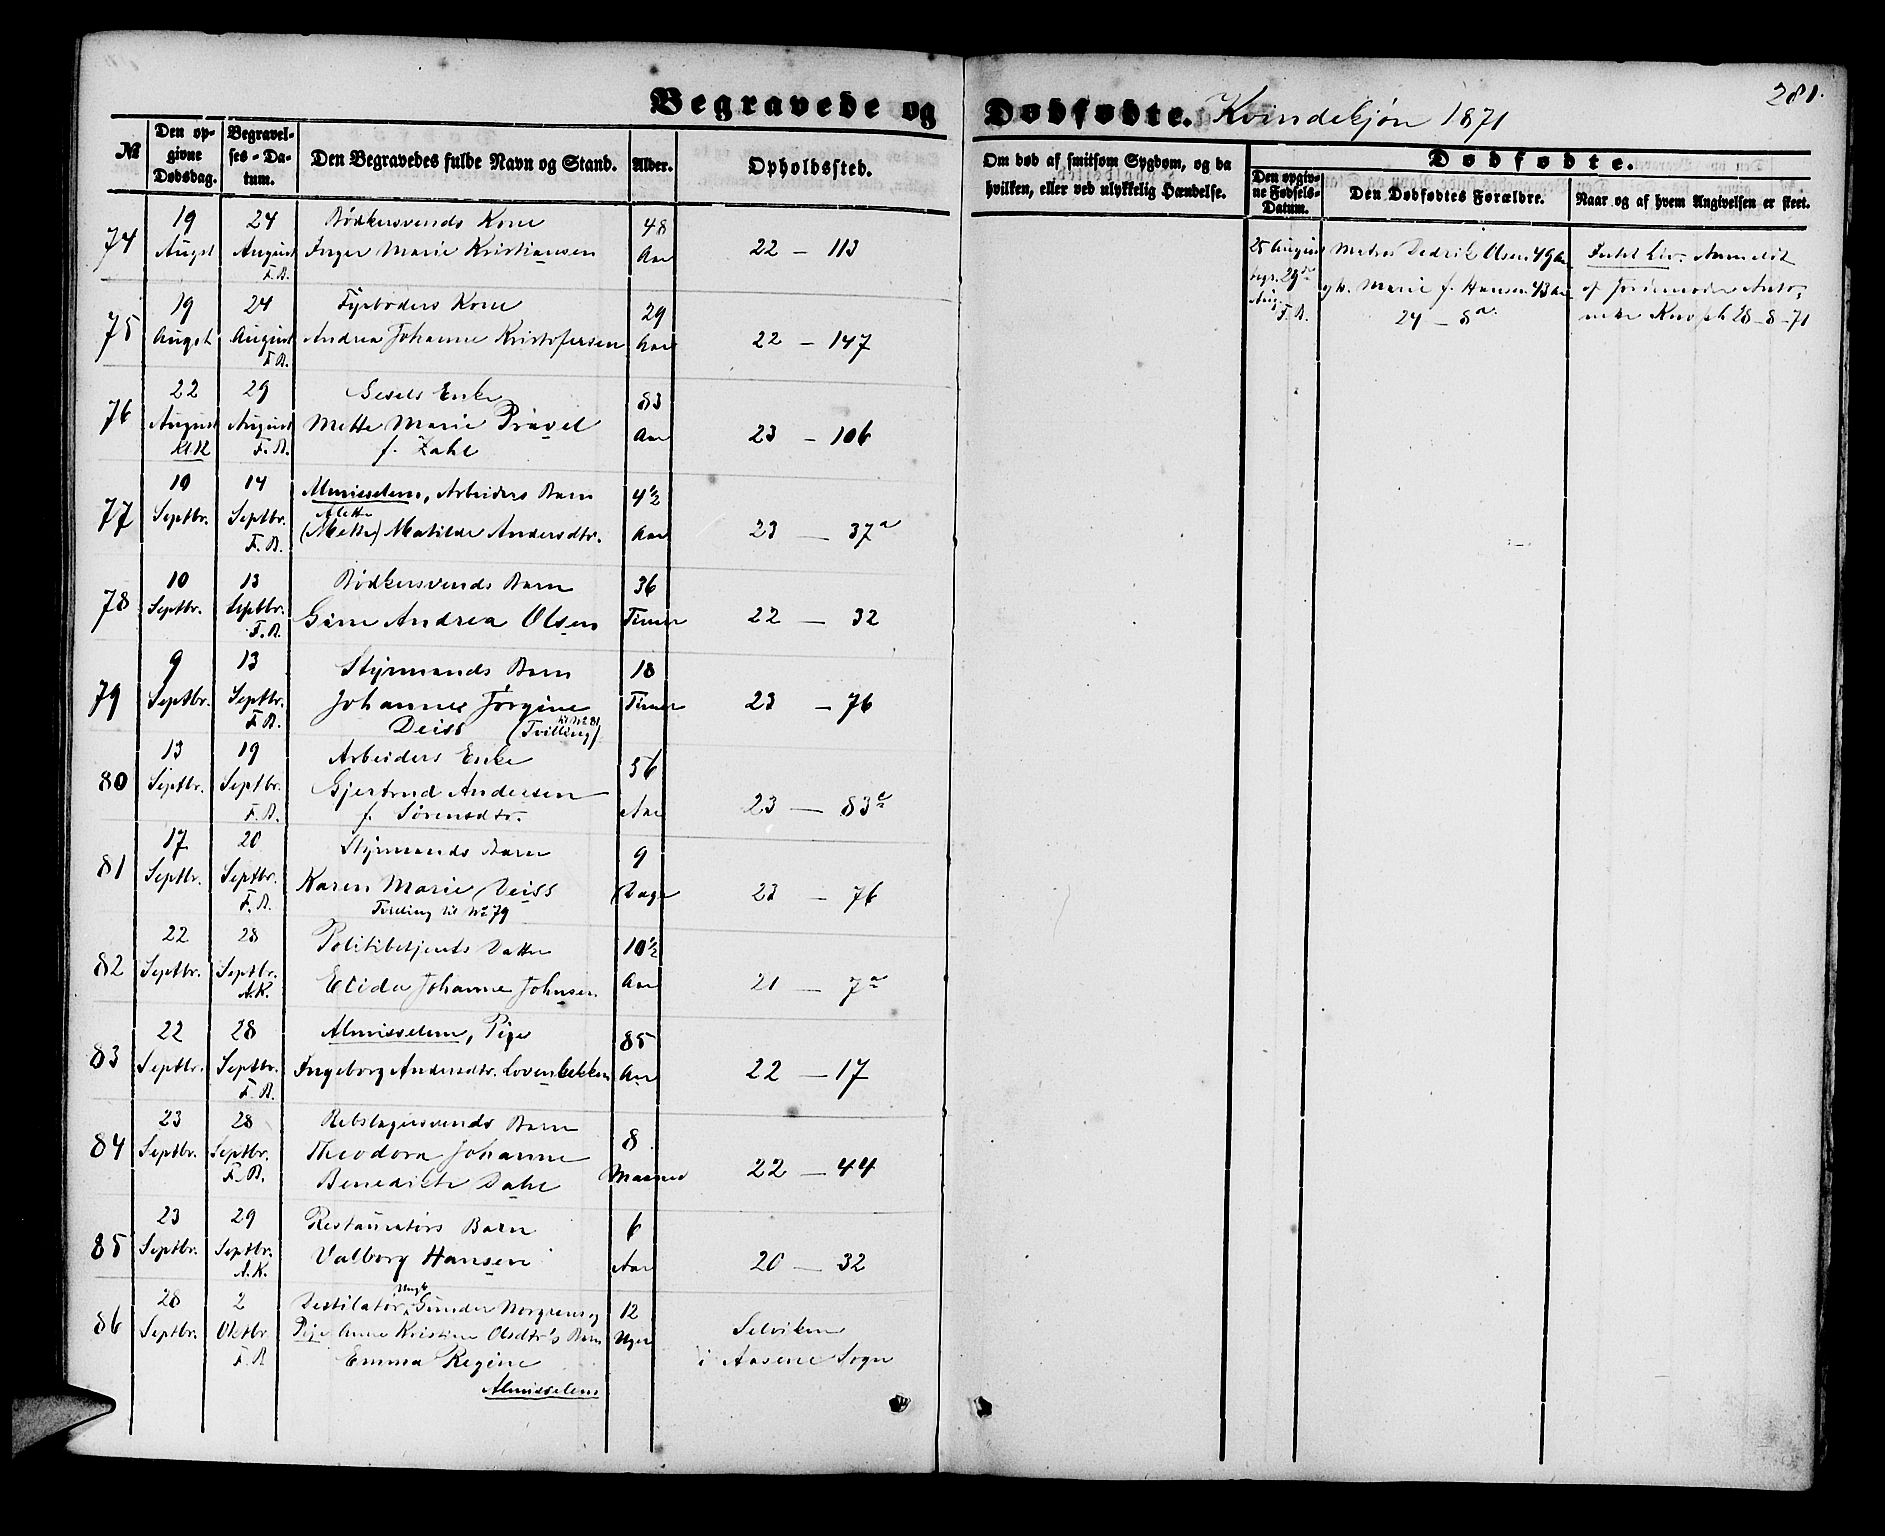 281.
Begravede og Dødfødte. Kvindekjøn 1871
№
Den op-
givne
Dødsdag.
Begravel-
ses-Da-
tum.
Den Begravedes fulde Navn og Stand.
Alder.
Opholdssted.
Om død af smitsom Sygdom, og da
hvilken, eller ved ulykkelig Hændelse.
Dødfødte.
Den opgiv-
ne Fødsels-
Datum.
Den Dødfødtes Forældre.
Naar og af hvem Angivelsen er skeet.
74
19
Augst
24
August
F.B.
Bødkersvends Kone
Inger Marie Kristiansen
48
Aar
22 - 113
25 August
begr. 29de
Aug.
F.B.
Olsen 49 Aar
Marie f. Hansen 43 Aar
24 - 8a
Anmeldt
af Jordemoder Anto-
28-8-71
75
19
Augst
24
August
F.B.
Fyrbøders Kone
Andrea Johanne Kristofersen
29
Aar
22 - 147
76
22
August
29
August
F.B.
Enke
Mette Marie Pravel
f. Zahl
83
Aar
23 - 106
77
10
Septbr.
14
Septbr.
F.B.
Almisselem, Arbeiders Barn
Alette
(Mette) Matilde Andersdtr.
4 1/2
Aar
23 - 37a
78
10
Septbr.
13
Septbr.
F.B.
Bødkersvends Barn
Gine Andrea Olsen
36
Timer
22 - 32
79
9
Septbr.
13
Septbr.
F.B.
Styrmands Barn
Johanne Jørgine
Deiss (Tvilling til No 81)
18
Timer
23 - 76
80
13
Septbr.
19
Septbr.
F.B.
Arbeiders Enke
Gjertrud Andersen
f. Sørensdtr.
56
Aar
23 - 83c
81
17
Septbr.
20
Septbr.
F.B.
Styrmands Barn
Karen Marie Deiss
Tvilling til No 79
9
Dage
23 - 76
82
22
Septbr.
28
Septbr.
A.K.
Politibetjents Datter
Elida Johanne Johnsen
10 1/2
Aar
21 - 7a
83
22
Septbr.
28
Septbr.
F.B.
Almisselem, Pige
Ingeborg Andersdtr. Lovenbekken
85
Aar
22 - 17
84
23
Septbr.
28
Septbr.
F.B.
Rebslagersvends Barn
Theodora Johanne
Benedicte Dahl
8
Maaned
22 - 44
85
23
Septbr.
29
Septbr.
A.K.
Restauratørs Barn
Valborg Hansen
6
Aar
20 - 32
86
28
Septbr.
2
Oktbr.
F.B.
Ungk.
Destilatør Gunder Norgrens og
Pige Anne Kristine Olsdtr's Barn
Emma Regine
Almisselem
12
Uger
Selviken
i Aasene Sogn